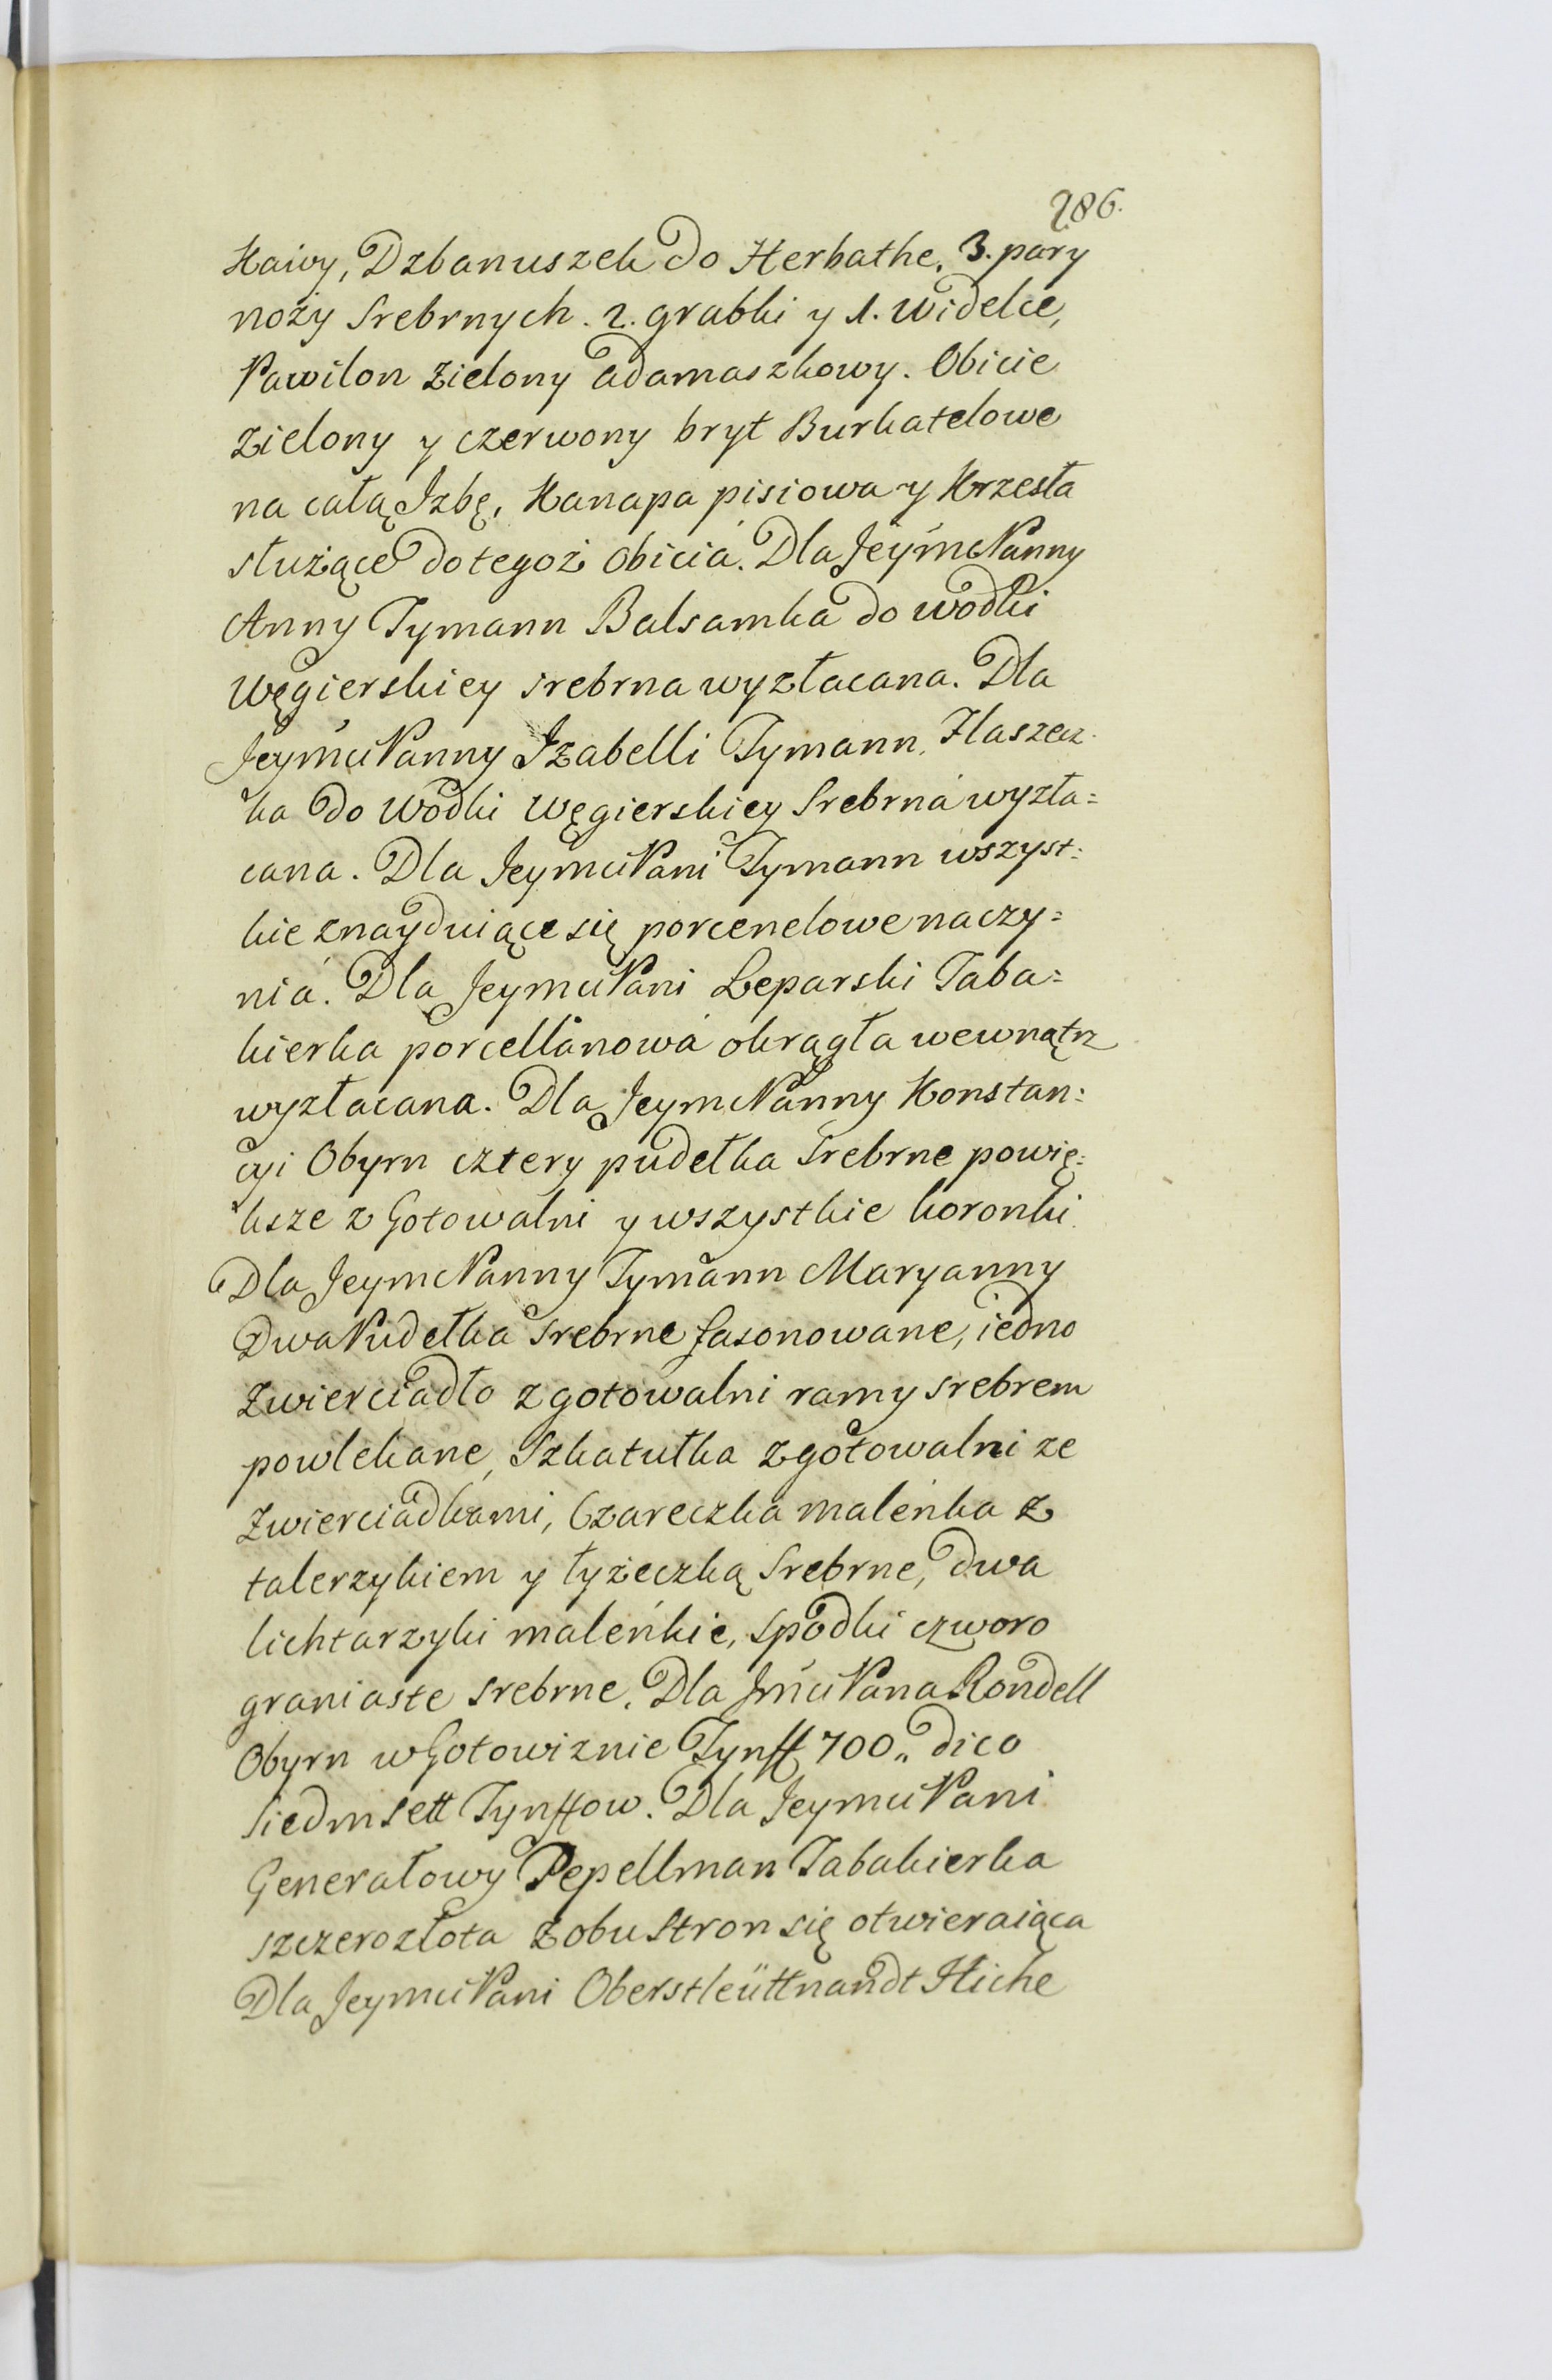 286.
Kawy, Dzbanuszek do Herbathe. 3. pary
noży Srebrnych. 2. grabki y 1. widelce,
Pawilon zielony adamaszkowy. Obicie
zielony y czerwony bryt Burkatelowe
na całą Izbę, Kanapa pisiowa y Krzesła
służące do tegoż obicia. Dla Jeymć Panny
Anny Tymann Balsamka do wodki
Węgierskiey srebrna wyzłacana. Dla
Jeymci Panny Izabelli Tymann. Flaszecz=
ka do Wodki Węgierskiey Srebrna wyzła=
cana. Dla Jeymci Pani Tymann wszyst=
kie znayduiące się porcenelowe naczy=
nia. Dla Jeymci Pani Leparski Taba=
kierka porcellanowa okrągła wewnątrz
wyzłacana. Dla Jeymc Panny Konstan=
cyi Obyrn cztery pudełka srebrne powię=
ksze z Gotowalni y wszystkie koronki.
Dla Jeymc Panny Tymann Maryanny
Dwa Pudełka srebrne fasonowane, iedno
Zwierciadło z gotowalni ramy srebrem
powlekane, Szkatułka z gotowalni ze
Zwierciadkami, Czareczka maleńka z
talerzykiem y łyżeczką Srebrne, dwa
lichtarzyki maleńkie, spodki czworo
graniaste srebrne. Dla Jmci Pana Rondell
Obyrn w Gotowiznie Tynff 700,, dico
siedmsett Tynffow. Dla Jeymci Pani
Generałowy Pepellman Tabakierka
szczerozłota z obu Stron się otwieraiąca
Dla Jeymci Pani Oberstleüttnandt Hicke